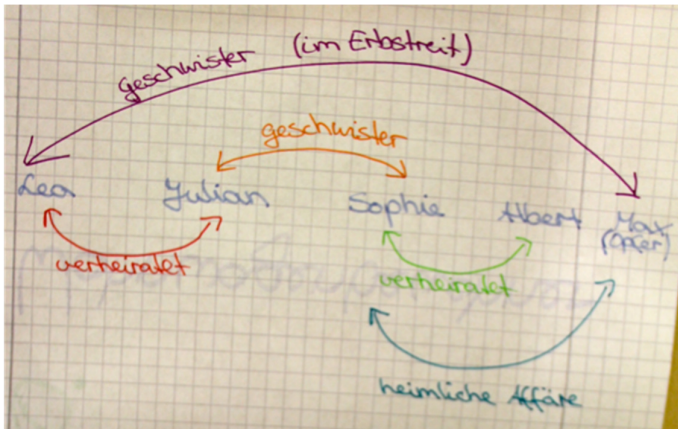 geschwister (im Erbstreit)
geschwister
Lea Julian Sophie Albert Max
(Opfer)
verheiratet
verheiratet
heimliche Affäre